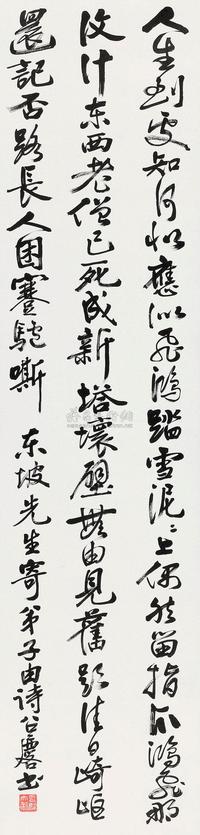 人生到处知何似應似飛鴻踏雪泥泥上偶然留指爪鴻飛那
復計东西老僧已死成新塔壞壁無由見舊題往日崎岖
還記否路長人困蹇驢嘶 东坡先生寄弟子由诗公麐书